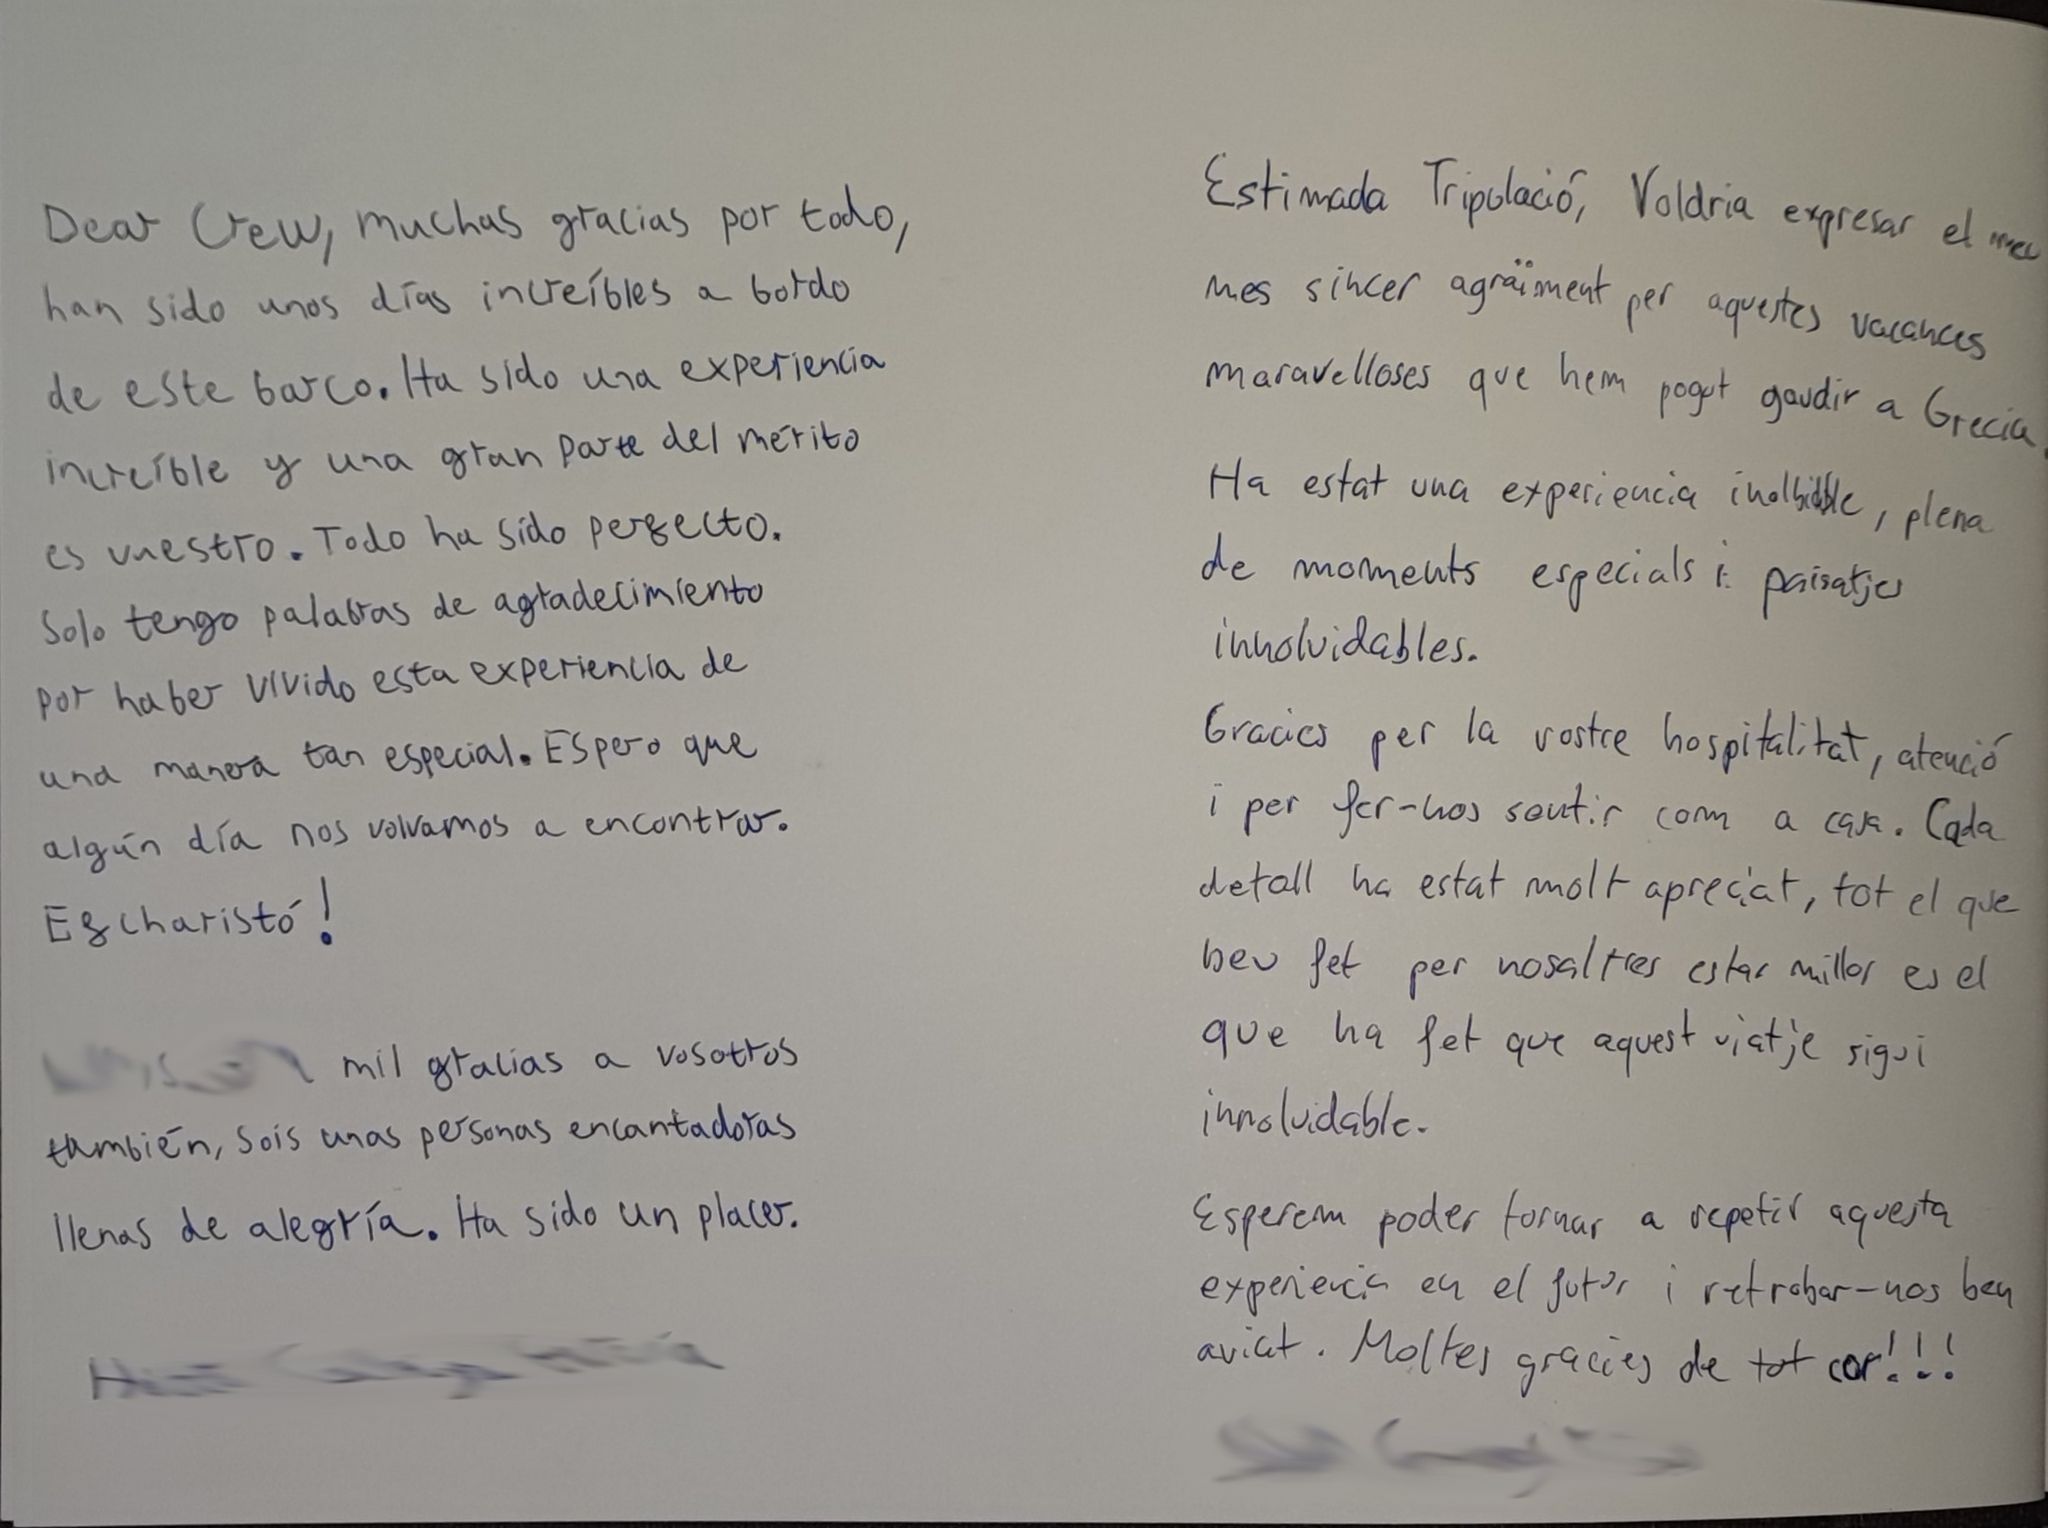 Dear Crew, muchas gracias por todo,
han sido unos días increíbles a bordo
de este barco. Ha sido una experiencia
increíble y una gran parte del mérito
es vuestro. Todo ha sido perfecto.
Solo tengo palabras de agradecimiento
por haber vivido esta experiencia de
una manera tan especial. Espero que
algún día nos volvamos a encontrar.
Efcharistó!
mil gracias a vosotros
también, sois unas personas encantadoras
llenas de alegría. Ha sido un placer.
Estimada Tripulació, Voldria expresar el meu
mes sincer agraïment per aquestes vacances
maravelloses que hem pogut gaudir a Grecia.
Ha estat una experiencia inolbidable, plena
de moments especials i paisatjes
innolvidables.
Gracies per la vostre hospitalitat, atenció
i per fer-nos sentir com a casa. Cada
detall ha estat molt apreciat, tot el que
heu fet per nosaltres estar millor es el
que ha fet que aquest viatje sigui
innolvidable.
Esperem poder tornar a repetir aquesta
experiencia en el futur i retrobar-nos ben
aviat. Moltes gracies de tot cor!!!